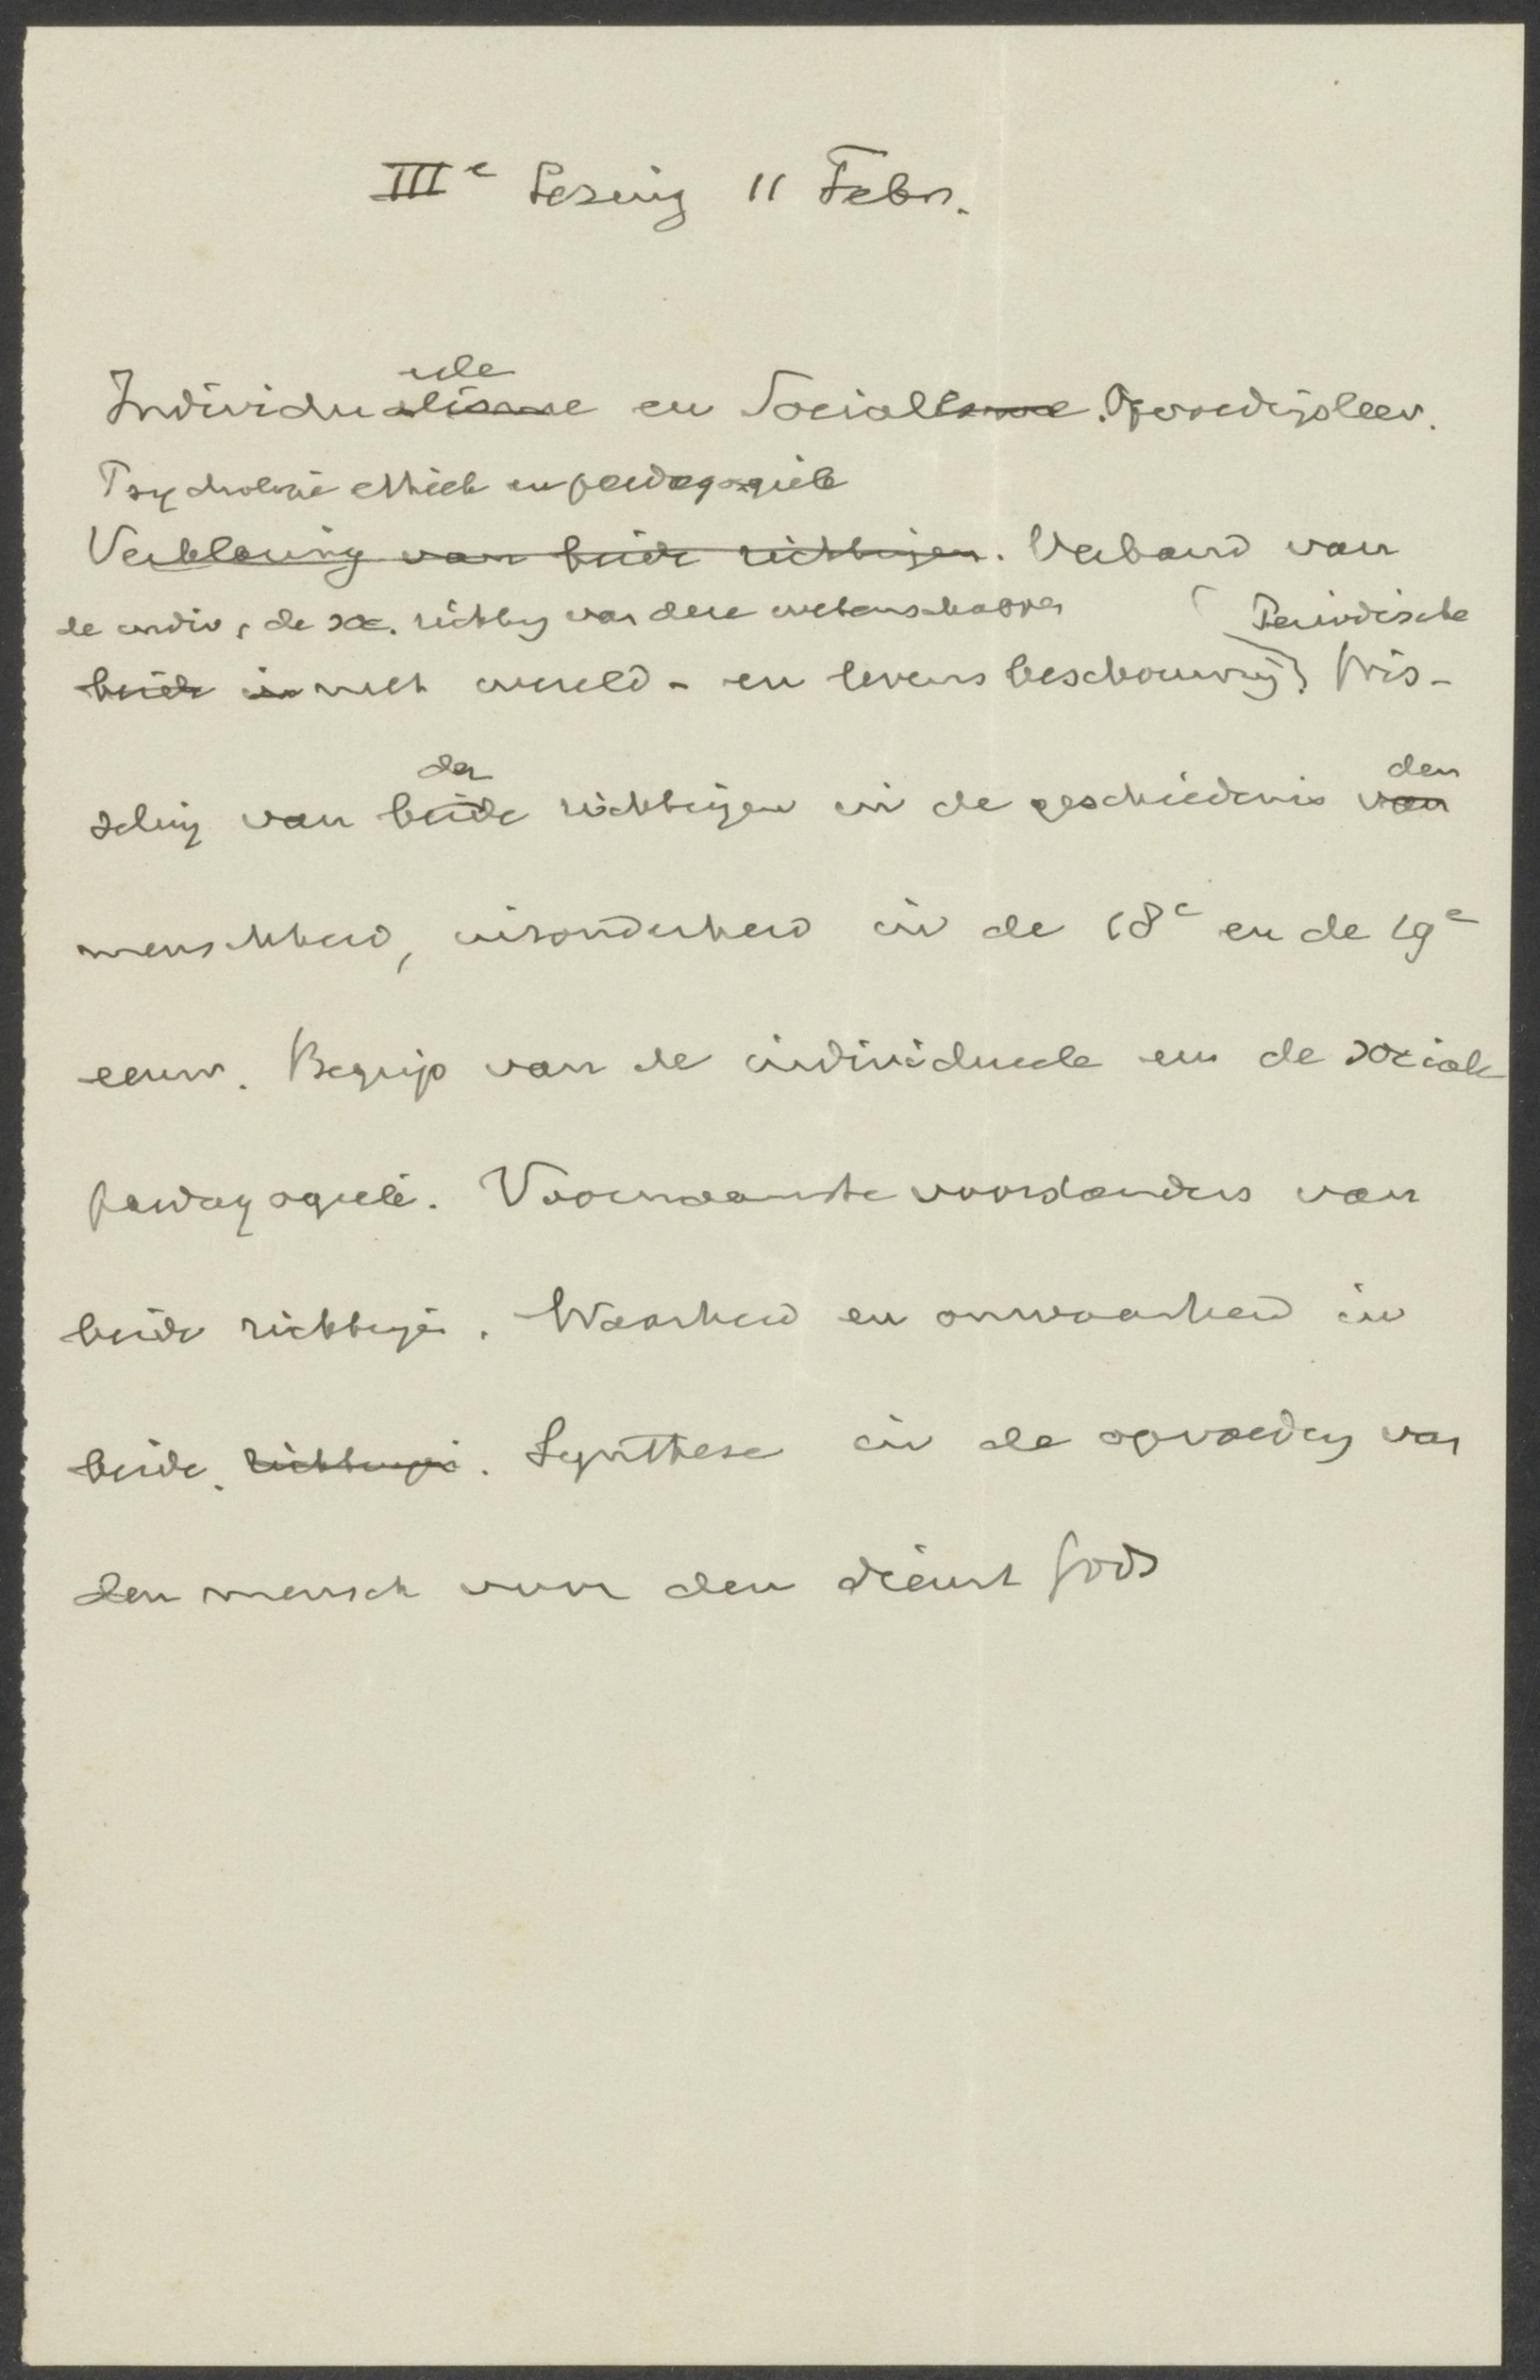 IIIe Lezing 11 Febr.
uele
Individualisme en Socialisme. Opvoedingsleer.
Psychologie ethiek en paedagogiek
Verklaring van beide richtingen. Verband van
de indiv, de soc. richting van deze wetenschappen
Periodische
beide in met wereld- en levensbeschouwing. Wis-
der den
seling van beide richtingen in de geschiedenis van
menschheid, inzonderheid in de 18e en de 19e
eeuw. Begrip van de individueele en de sociale
paedagogiek. Voornaamste voorstanders van
beide richtingen. Waarheid en onwaarheid in
beide. richtingen. Synthese in de opvoeding van
den mensch voor den dienst Gods